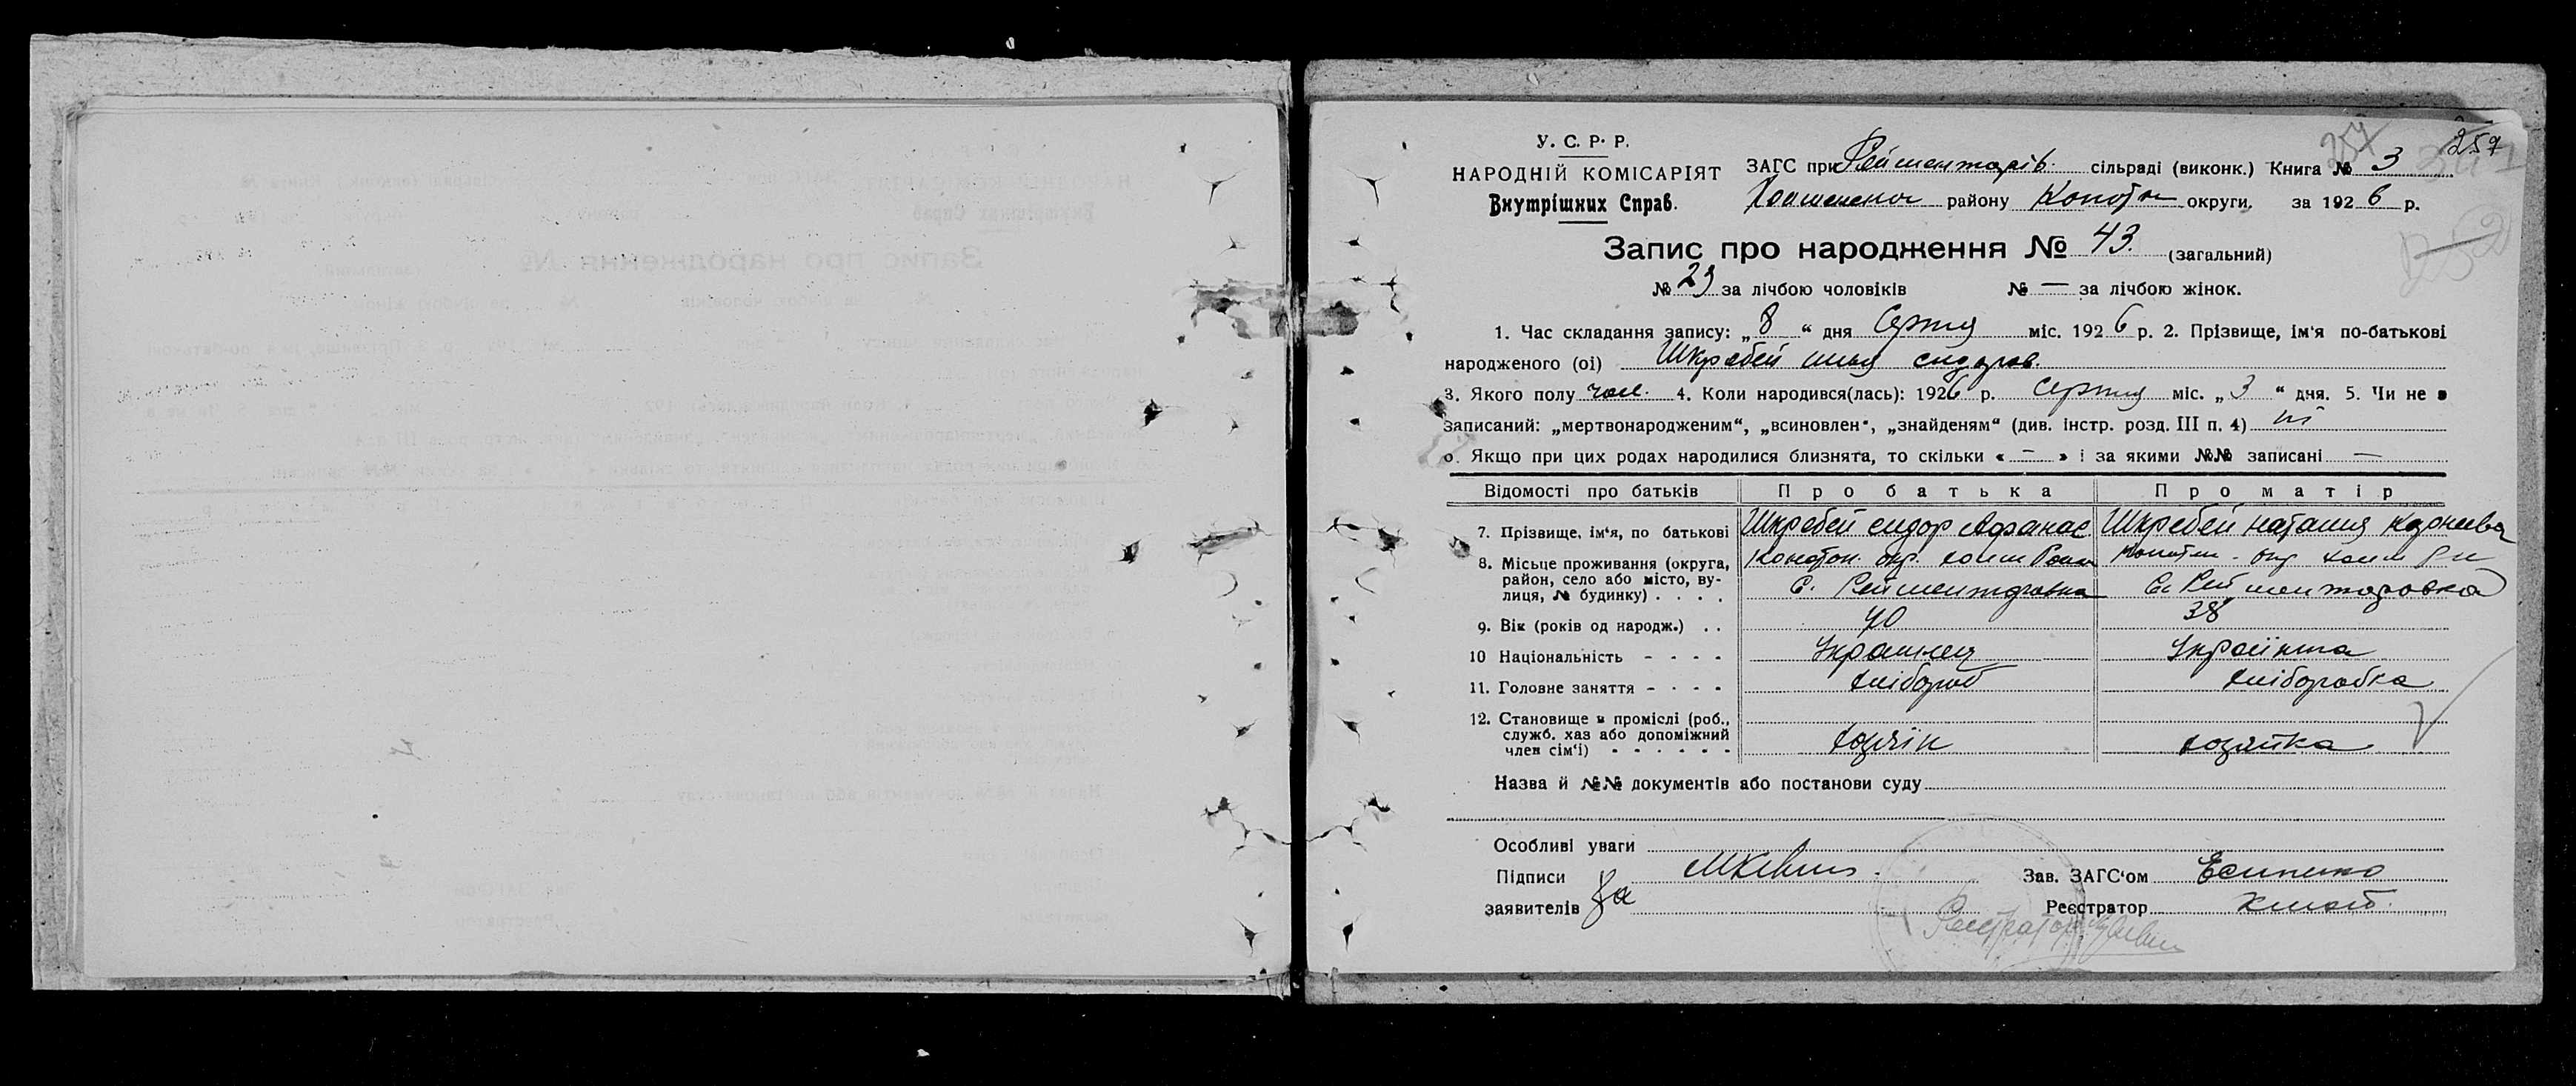 257 257
У. С. Р. Р.
НАРОДНІЙ КОМІСАРІЯТ
Внутрішних Справ.
ЗАГС при Рейментарів. сільраді (виконк.) Книга № 3
району Конотоп округи, за 1926 р.
Запис про народження № 43. (загальний)
№ 23 за лічбою чоловіків № — за лічбою жінок.
1. Час складання запису: „8“ дня Серпня міс. 1926 р. 2. Прізвище, ім'я по-батькові
народженого (оі) Шкребей Илья сидоров.
3. Якого полу чол. 4. Коли народився(лась): 1926 р. Серпня міс. „3“ дня. 5. Чи не
записаний: „мертвонародженим“, „всиновлен“, „знайденям“ (див. інстр. розд. III п. 4) ні
6. Якщо при цих родах народилися близнята, то скільки « — » і за якими №№ записані —
Відомості про батьків Про батька Про матір
7. Прізвище, ім'я, по батькові Шкребей сидор Афанас. Шкребей наталия Корнеевa
8. Місьце проживання (округа, Конотоп. окр.
район, село або місто, ву-
лиця, № будинку) . . . . С. Рейментаровка С. Рейментаровка
9. Вік (років од народж.) . . 40 38
10 Національність - - - - Українец Українка
11. Головне заняття - - - - хлібороб хліборобка
12. Становище в промислі (роб.,
служб. хаз або допоміжний
член сім'ї) - - - - - - хозяїн хозяйка
Назва й №№ документів або постанови суду
Особливі уваги
Підписи
заявителів За
Зав. ЗАГС'ом Есипенко
Реєстратор
Реєстратор